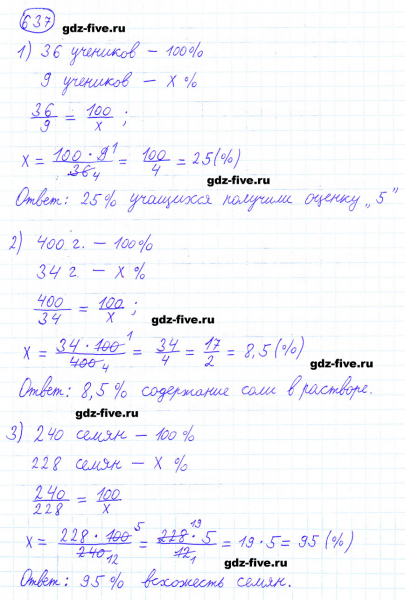 637
gdz-five.ru
1) 36 учеников – 100%
9 учеников – x %
36/9 = 100/x ;
x = 100 · 9 1 / 36 4 = 100/4 = 25(%)
gdz-five.ru
Ответ: 25% учащихся получили оценку „5”
gdz-five.ru
2) 400 г. – 100%
34 г. – x %
400/34 = 100/x ;
gdz-five.ru
x = 34 · 100 1 / 400 4 = 34/4 = 17/2 = 8,5(%)
gdz-five.ru
Ответ: 8,5% содержание соли в растворе.
gdz-five.ru
3) 240 семян – 100%
228 семян – x %
240/228 = 100/x
gdz-five.ru
x = 228 · 100 5 / 240 12 = 228 19 · 5 / 12 1 = 19 · 5 = 95 (%)
gdz-five.ru
Ответ: 95% всхожесть семян.
gdz-five.ru